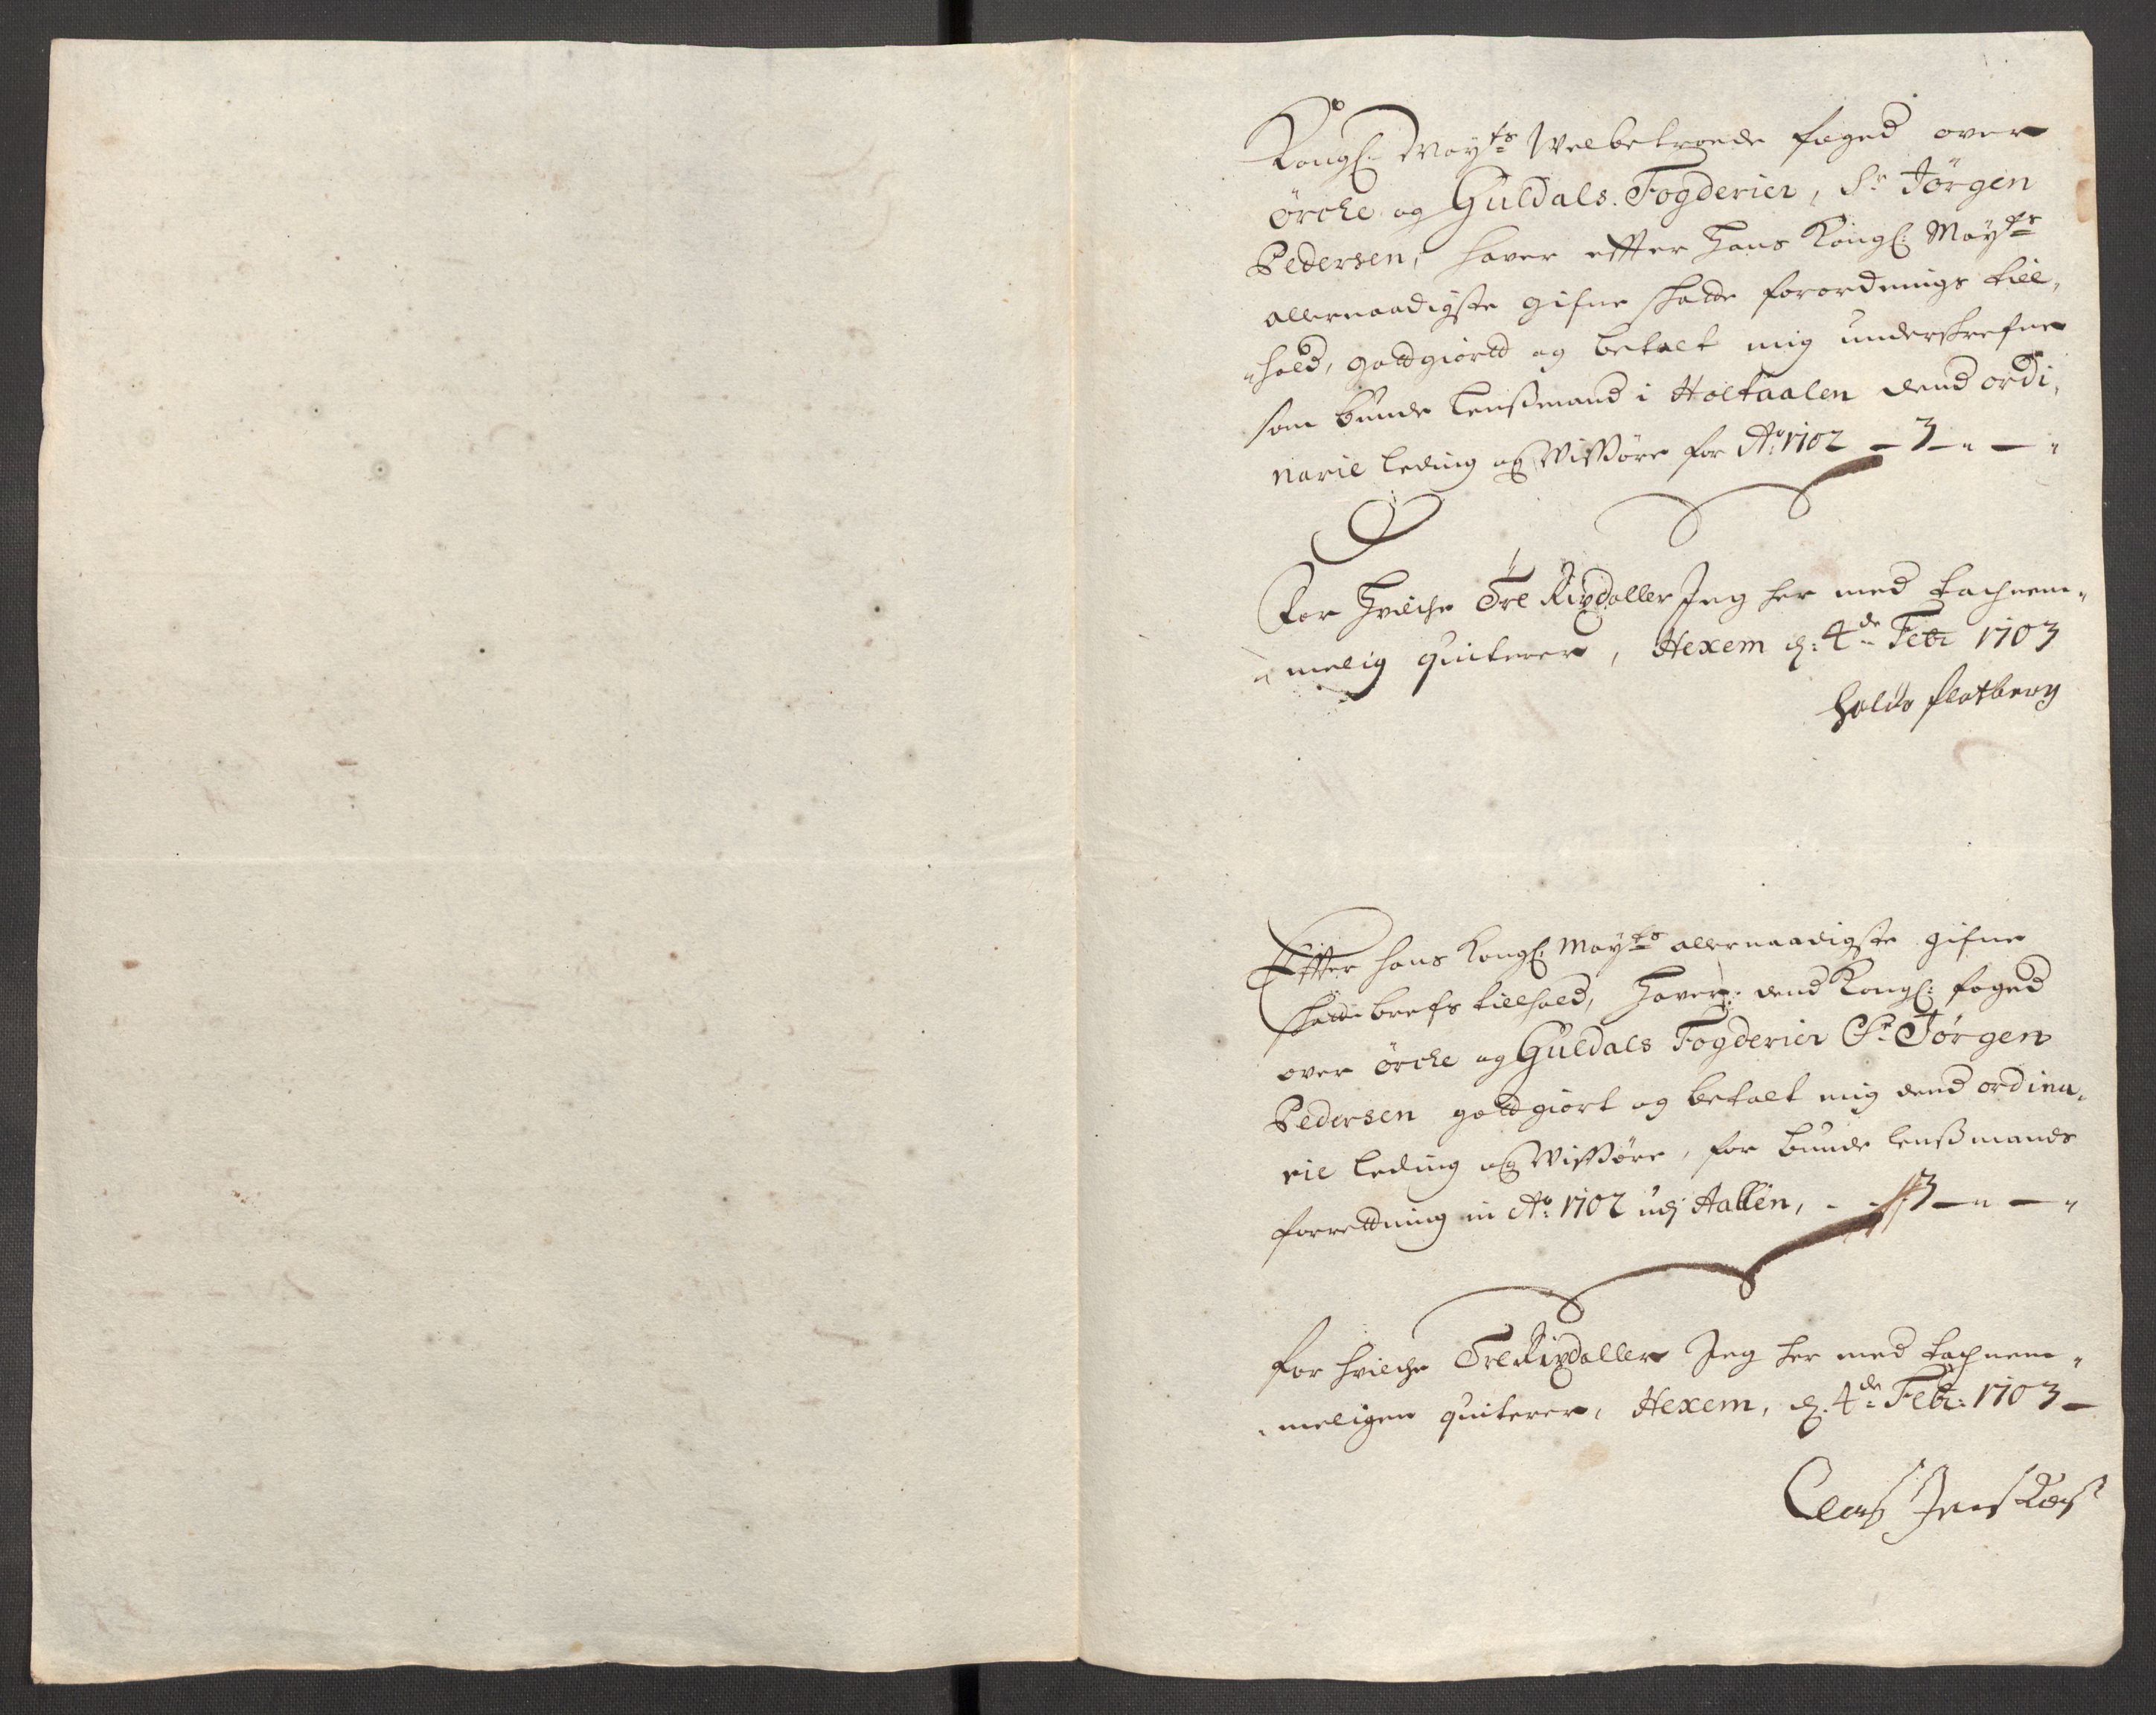 Kongl: Mayts Welbetroede foged over
ørche og Guldals Fogderier, Sr Jørgen
Pedersen, haver effter Hans Kongl: Mayts
allernaadigste gifne skatte forordnings till„
„hold, gottgiortt og betalt mig underskrefne
som bunde lenssmand i Holtaalen dend ordi„
narie leding og Wissøre for Ao: 1702 — 3 — „ — „
For Hvilche Tre Rixdaller Jeg her med tachnem„
„melig quiterer, Hexem d: 4de Febr 1703
Haldo flatberg
Effter hans Kongl: Mayts allernaadigste gifne
skatte brefs tillhold, Haver dend Kongl: foged
over ørche og Guldals Fogderier Sr Jørgen
Pedersen gottgiort og betalt mig dend ordina„
rie leding og Wissøre, for bunde lenssmands
forrettning in Ao: 1702 udj Aallen, - - 3 — „ — „
for hvilche Tre Rixdaller Jeg her med tachnem„
„meligen quiterer, Hexem, d: 4de Febr: 1703 —
Claes